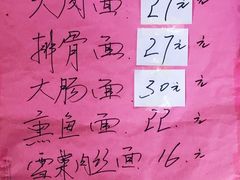 大肉面 27元 元
排骨面 27元 元
大肠面 30元 元
熏鱼面 22.元
雪菜肉丝面 16.元